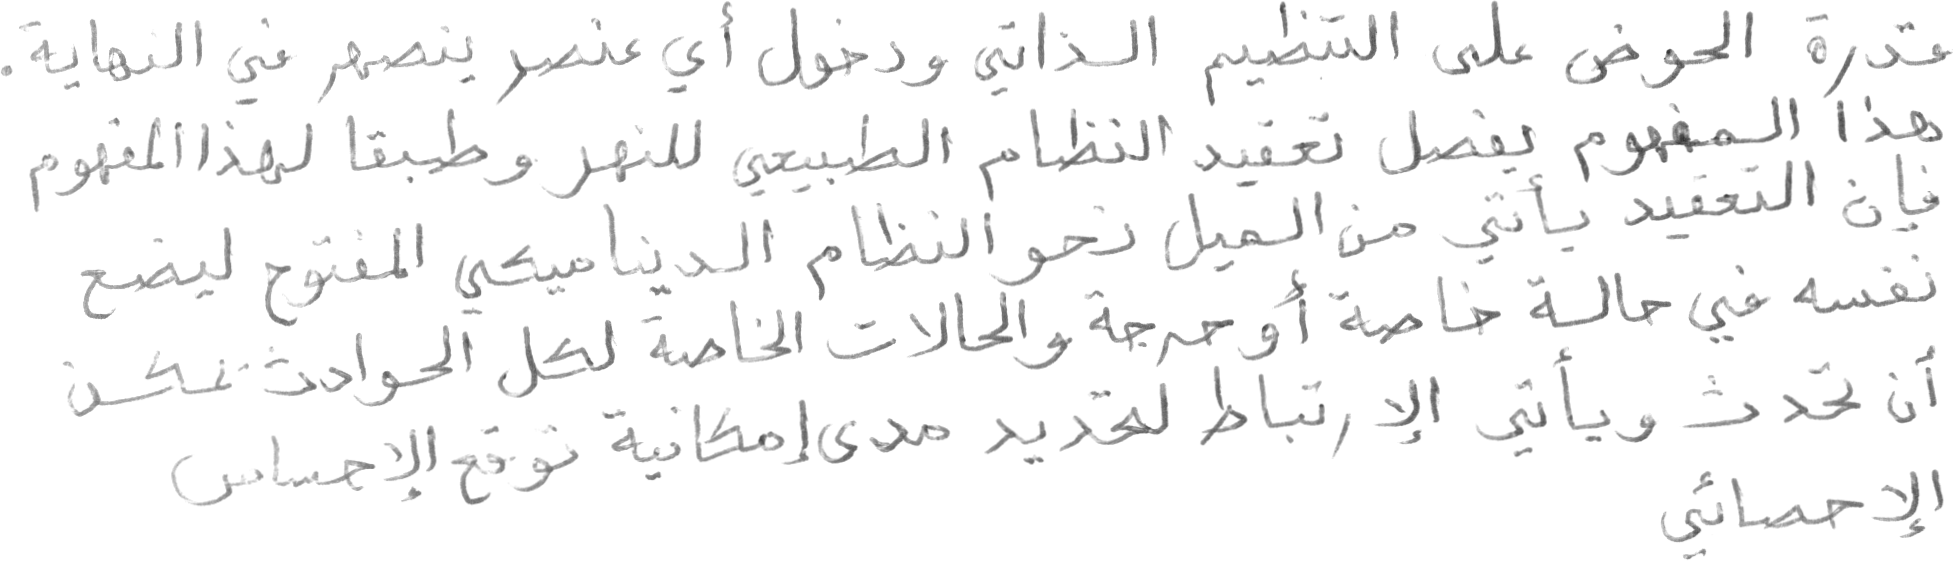 قدرة الحوض على التنظيم الذاتي ودخول أي عنصر ينصهر في النهاية.
هذا المفهوم يفصل تعقيد النظام الطبيعي للنهر وطبقا لهذا المفهوم
فإن التعقيد يأتي من الميل نحو النظام الديناميكي المفتوح ليضع
نفسه في حالة خاصة أو حرجة والحالات الخاصة لكل الحوادث يمكن
أن تحدث ويأتي الإرتباط لتحديد مدى إمكانية توقع الإحساس
الإحصائي